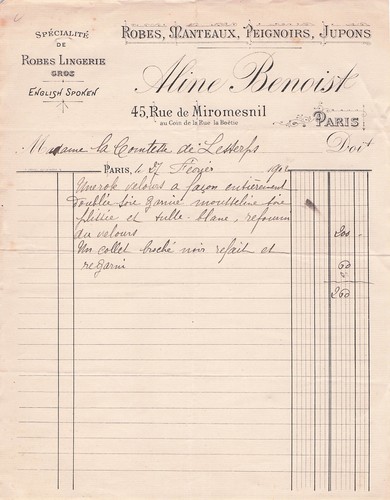 SPÉCIALITÉ
DE
ROBES LINGERIE
GROS
ENGLISH SPOKEN
ROBES, MANTEAUX, PEIGNOIRS, JUPONS
Aline Benoist
45, Rue de Miromesnil
au Coin de la Rue la Boëtie
PARIS
Madame la Comtesse de Lesseps Doit
PARIS, le 27 Février 190
Une robe velours a façon entièrement
doublée soie garnie mousseline soie
plissée et tulle blanc, refourni
du velours 200
Un collet broché noir refait et
regarni 60
260